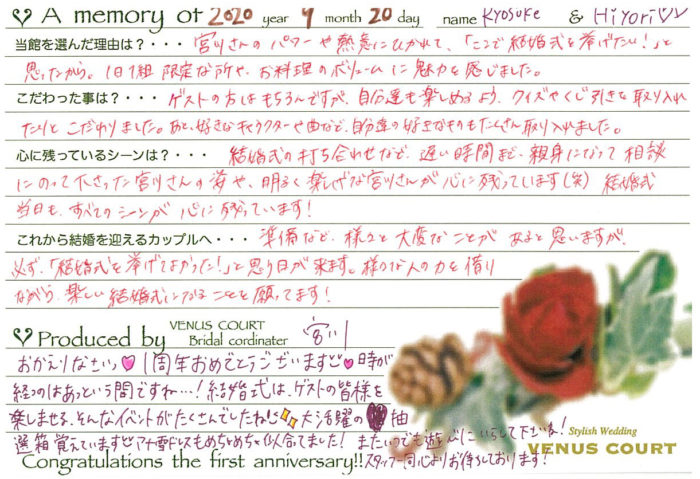 A memory of 2020 year 9 month 20 day name KYOSUKE & HiYORi
当館を選んだ理由は？・・・ 宮川さんの パワーや熱意にひかれて、「ここで結婚式を挙げたい！」と
思ったから。1日1組 限定な所や、お料理のボリュームに魅力を感じました。
こだわった事は？・・・ ゲストの方はもちろんですが、自分達も楽しめるよう、クイズやくじ引きを取り入れ
たりと こだわりました。あと、好きなキャラクターや曲など、自分達の好きなものもたくさん取り入れました。
心に残っているシーンは？・・・ 結婚式の打ち合わせなど、遅い時間まで、親身になって相談
にのって下さった宮川さんの姿や、明るく楽しげな宮川さんが心に残っています(笑) 結婚式
当日も、すべてのシーンが心に残っています！
これから結婚を迎えるカップルへ・・・ 準備など、様々と大変なことが あると思いますが、
必ず、「結婚式を挙げてよかった！」と思う日が来ます。様々な人の力を借り
ながら、楽しい結婚式になることを願ってます！
Produced by VENUS COURT
Bridal cordinater
おかえりなさい 1周年おめでとうございます 時が
経つのはあっという間ですね…！結婚式は、ゲストの皆様を
楽しませる、そんなイベントがたくさんでしたね 大活躍の 抽
選箱 覚えています アナ雪ドレスもめちゃめちゃ似合てました！またいつでも遊びにいらして下さいね！
Stylish Wedding
VENUS COURT
Congratulations the first anniversary!! スタッフ一同心よりお待ちしております！